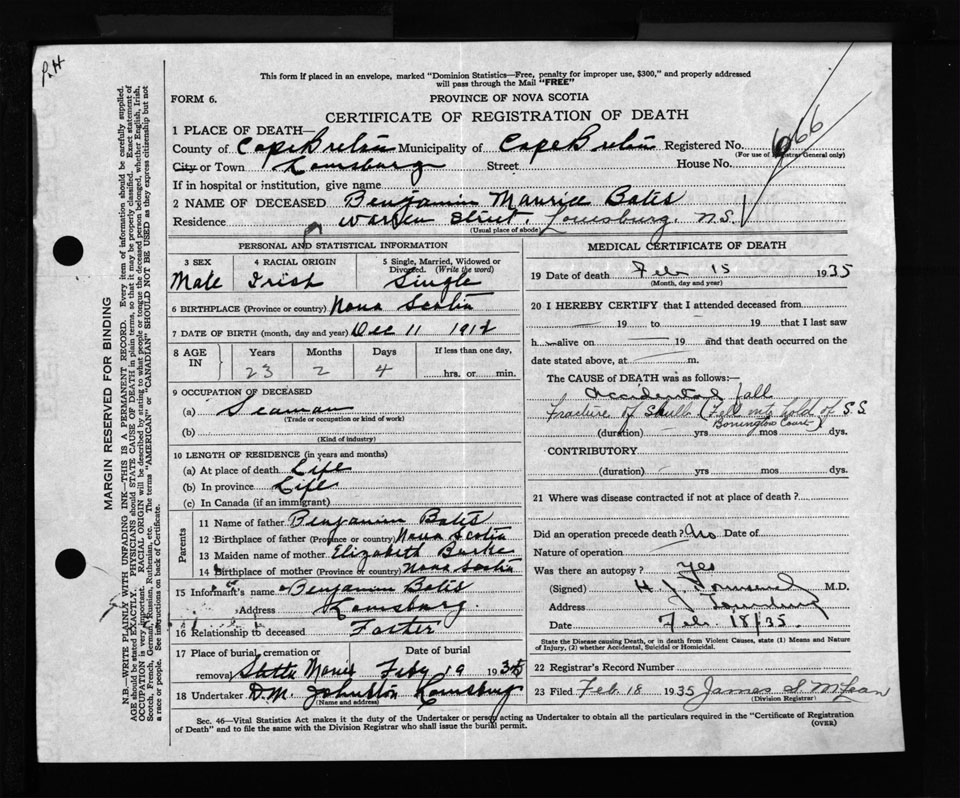 P.H
This form if placed in an envelope, marked "Dominion Statistics—Free, penalty for improper use, $300," and properly addressed
will pass through the Mail "FREE"
FORM 6.
PROVINCE OF NOVA SCOTIA
CERTIFICATE OF REGISTRATION OF DEATH
1 PLACE OF DEATH—
County of Cape Breton Municipality of Cape Breton Registered No. 666
(For use of Registrar General only)
City or Town Louisburg Street House No.
If in hospital or institution, give name
2 NAME OF DECEASED Benjamin Maurice Bates
Residence Warren Street. Louisburg, N.S.
(Usual place of abode)
PERSONAL AND STATISTICAL INFORMATION
3 SEX
4 RACIAL ORIGIN
5 Single, Married, Widowed or
Divorced. (Write the word)
Male Irish Single
6 BIRTHPLACE (Province or country) Nova Scotia
7 DATE OF BIRTH (month, day and year) Dec 11
8 AGE
IN
Years Months Days If less than one day,
23 2 4 hrs. or min.
9 OCCUPATION OF DECEASED
(a) Seaman
(Trade or occupation or kind of work)
(b)
(Kind of industry)
10 LENGTH OF RESIDENCE (in years and months)
(a) At place of death Life
(b) In province Life
(c) In Canada (if an immigrant)
Parents
11 Name of father Benjamin Bates
12 Birthplace of father (Province or country) Nova Scotia
13 Maiden name of mother Elizabeth Burke
14 Birthplace of mother (Province or country) Nova Scotia
15 Informant's name Benjamin Bates
Address Louisburg.
16 Relationship to deceased Father
17 Place of burial, cremation or
removal Stella Maris
Date of burial
Feby 19 1935
18 Undertaker D.M. Johnston Louisburg
(Name and address)
MEDICAL CERTIFICATE OF DEATH
19 Date of death Feb 15 1935
(Month, day and year)
20 I HEREBY CERTIFY that I attended deceased from
19 to 19 that I last saw
h alive on 19 and that death occurred on the
date stated above, at m.
The CAUSE of DEATH was as follows:—
Accidental fall
fracture of Skull (Fell into hold of S.S.
Bonnington Court)
(duration) yrs mos dys.
CONTRIBUTORY
(duration) yrs. mos. dys.
21 Where was disease contracted if not at place of death?
Did an operation precede death? No Date of
Nature of operation
Was there an autopsy? Yes
(Signed) H J Townsend M.D.
Address Louisburg
Date Feb. 18/35.
State the Disease causing Death, or in death from Violent Causes, state (1) Means and Nature
of Injury, (2) whether Accidental, Suicidal or Homicidal.
22 Registrar's Record Number
23 Filed Feb 18 1935 James S. McLean
(Division Registrar)
Sec. 46—Vital Statistics Act makes it the duty of the Undertaker or person acting as Undertaker to obtain all the particulars required in the "Certificate of Registration
of Death" and to file the same with the Division Registrar who shall issue the burial permit.
(OVER)
MARGIN RESERVED FOR BINDING
N.B.—WRITE PLAINLY WITH UNFADING INK—THIS IS A PERMANENT RECORD. Every item of information should be carefully supplied.
AGE should be stated EXACTLY. PHYSICIANS should STATE CAUSE OF DEATH in plain terms, so that it may be properly classified. Exact statement of
OCCUPATION is very important. RACIAL ORIGIN will be described by stating to what people or tongue the deceased person belonged, whether English, Irish,
Scotch, French, German, Russian, Ruthenian, etc. The terms "AMERICAN" or "CANADIAN" SHOULD NOT BE USED as they express citizenship but not
a race or people. See instructions on back of Certificate.